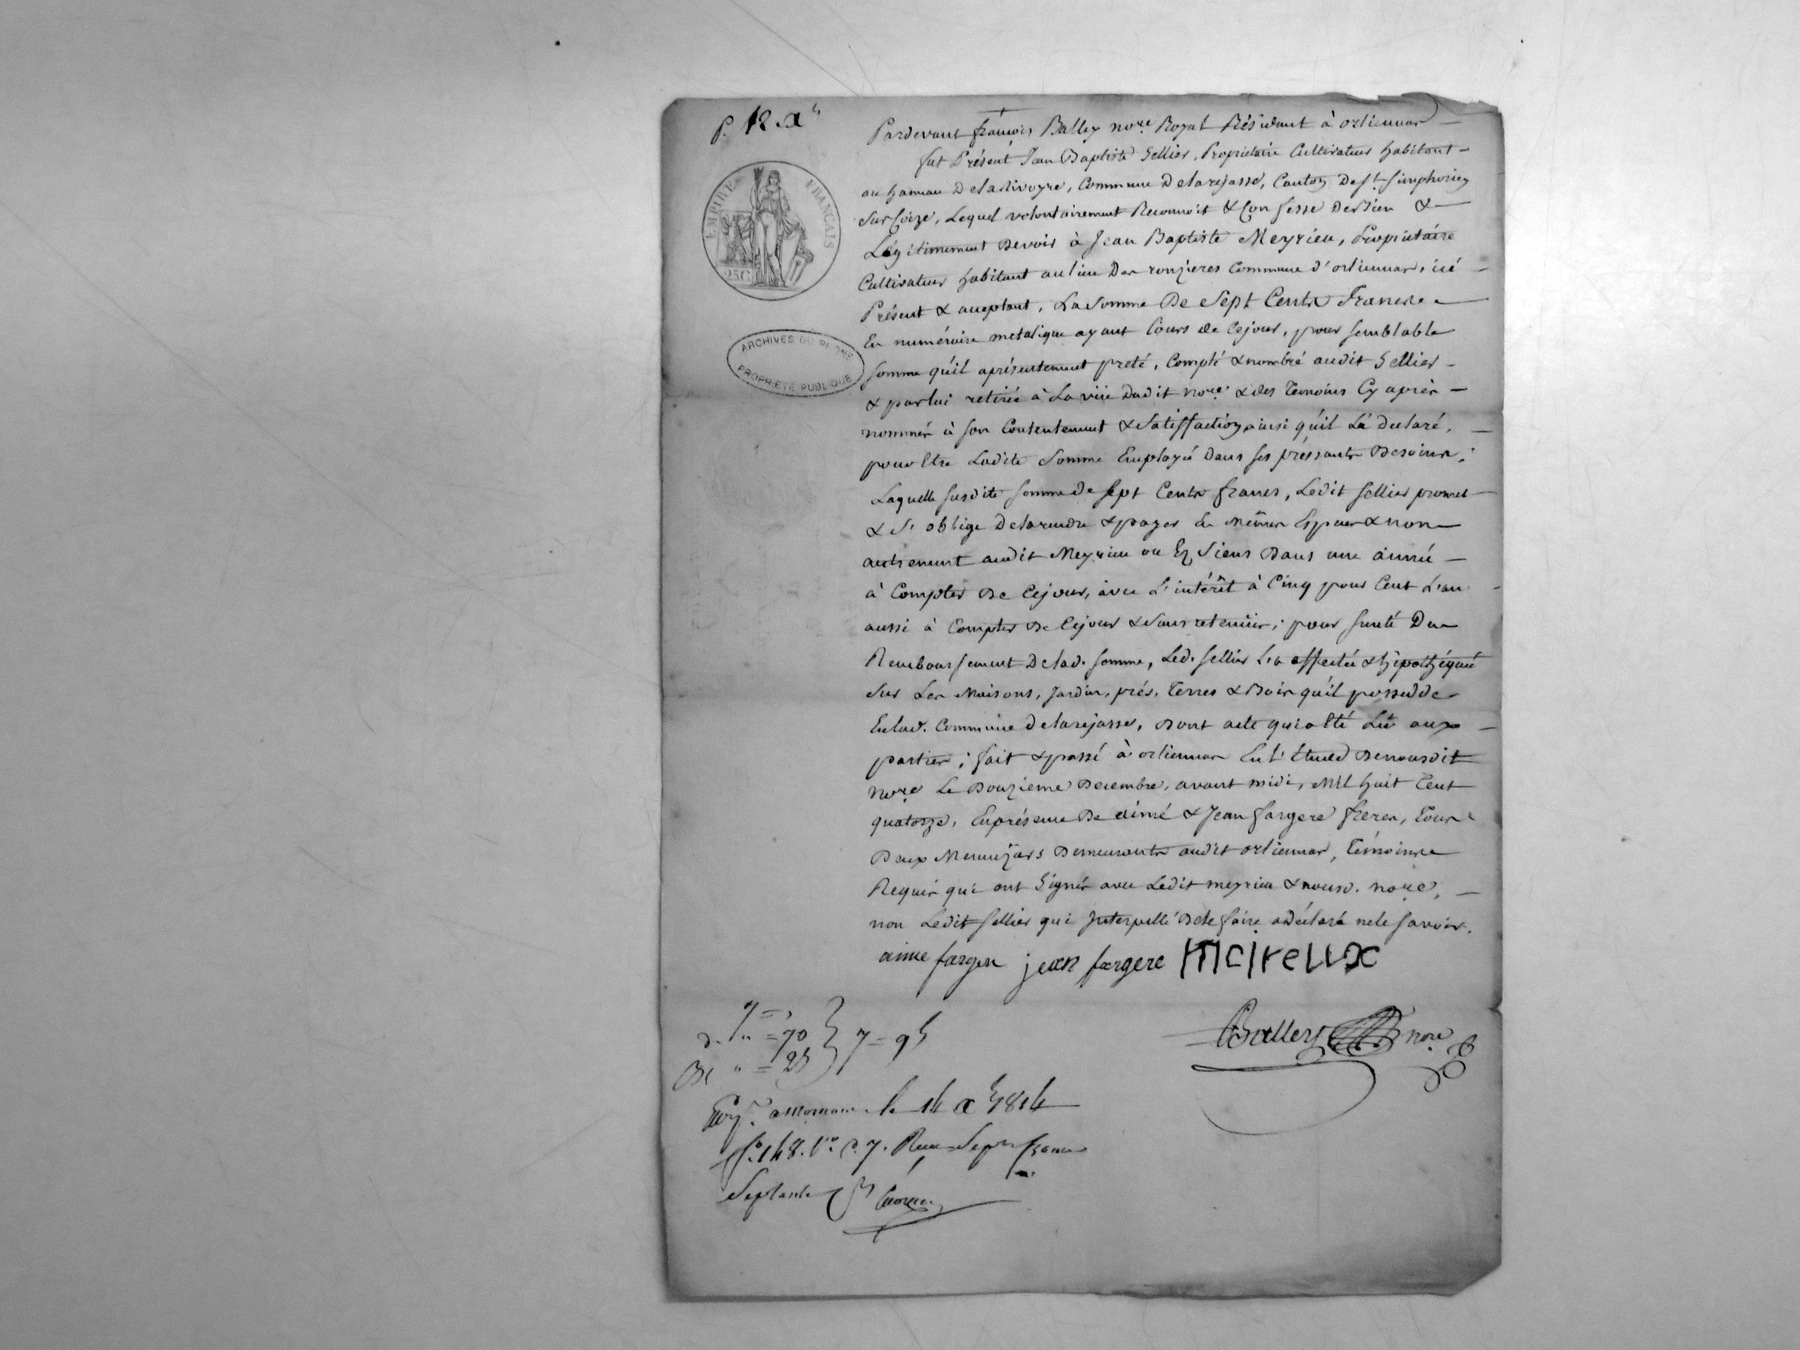 P. 12 Xbre
EMPIRE FRANÇAIS
25 C
ARCHIVES DU RHÔNE
PROPRIÉTÉ PUBLIQUE
Pardevant françois Balley nore. Royal Résidant à orliennas
fut Présent Jean Baptiste Sellier, Proprietaire Cultivateur habitant
au hameau Deladivoyre, Commune Delarajasse, Canton De St. Simphorien
Sur Coize, Lequel volontairement Reconnoit & Confesse Devoir &
Légitimement Devoir à Jean Baptiste Meyrieu, Proprietaire
Cultivateur habitant au lieu Des ronzieres Commune d'orliennas, icé
Présent & aceptant, La Somme De Sept Cents Francs
En numéraire metalique ayant Cours de Cejour, pour semblable
somme qu'il aprésentement preté, Compté & nombré audit Sellier
& par lui retirée à La vüe Dudit nore. & des Temoins Cy après
nommés à son Contentement & Satisffaction ainsi qu'il La déclaré,
pour Etre Ladite Somme Employée Dans ses préssants Besoins;
Laquelle susdite somme De sept Cents francs, Ledit sellier promet
& S'oblige Delarendre & payer En Mêmes Espèces & non
autrement audit Meyrieu ou Ez Siens Dans une année
à Compter De Cejour, avec L'intérêt à Cinq pour Cent L'an
aussi à Compter De Cejour & Sans retenüe; pour sureté Du
Remboursement Delad. somme, Led. sellier L'a affectée & hipothéquée
Sur Les Maisons, Jardin, prés, Terres & Bois qu'il possedde
Enlad. Commune Delarajasse, Dont acte qui a Eté Lû aux
parties; fait & passé à orliennas En l'Etude De nousdit
nore Le Douzieme Decembre, avant midi, Mil huit Cent
quatorze, En présence De aimé & Jean fargere freres, Tous
Deux Menuiziers Demeurants audit orliennas, Témoins
Requis qui ont Signés avec Ledit meyrieu & nousd. nore,
non Ledit sellier qui Interpellé De le faire a déclaré ne le savoir.
aime fargere jean fargere mcireux
Balley nore
7 = "
d. " = 70 } 7 = 95
" = 25
Enr. a Mornant le 14 Xbre 1814
fo. 148. Vo. C. 7. Reçu Sept francs
Septante